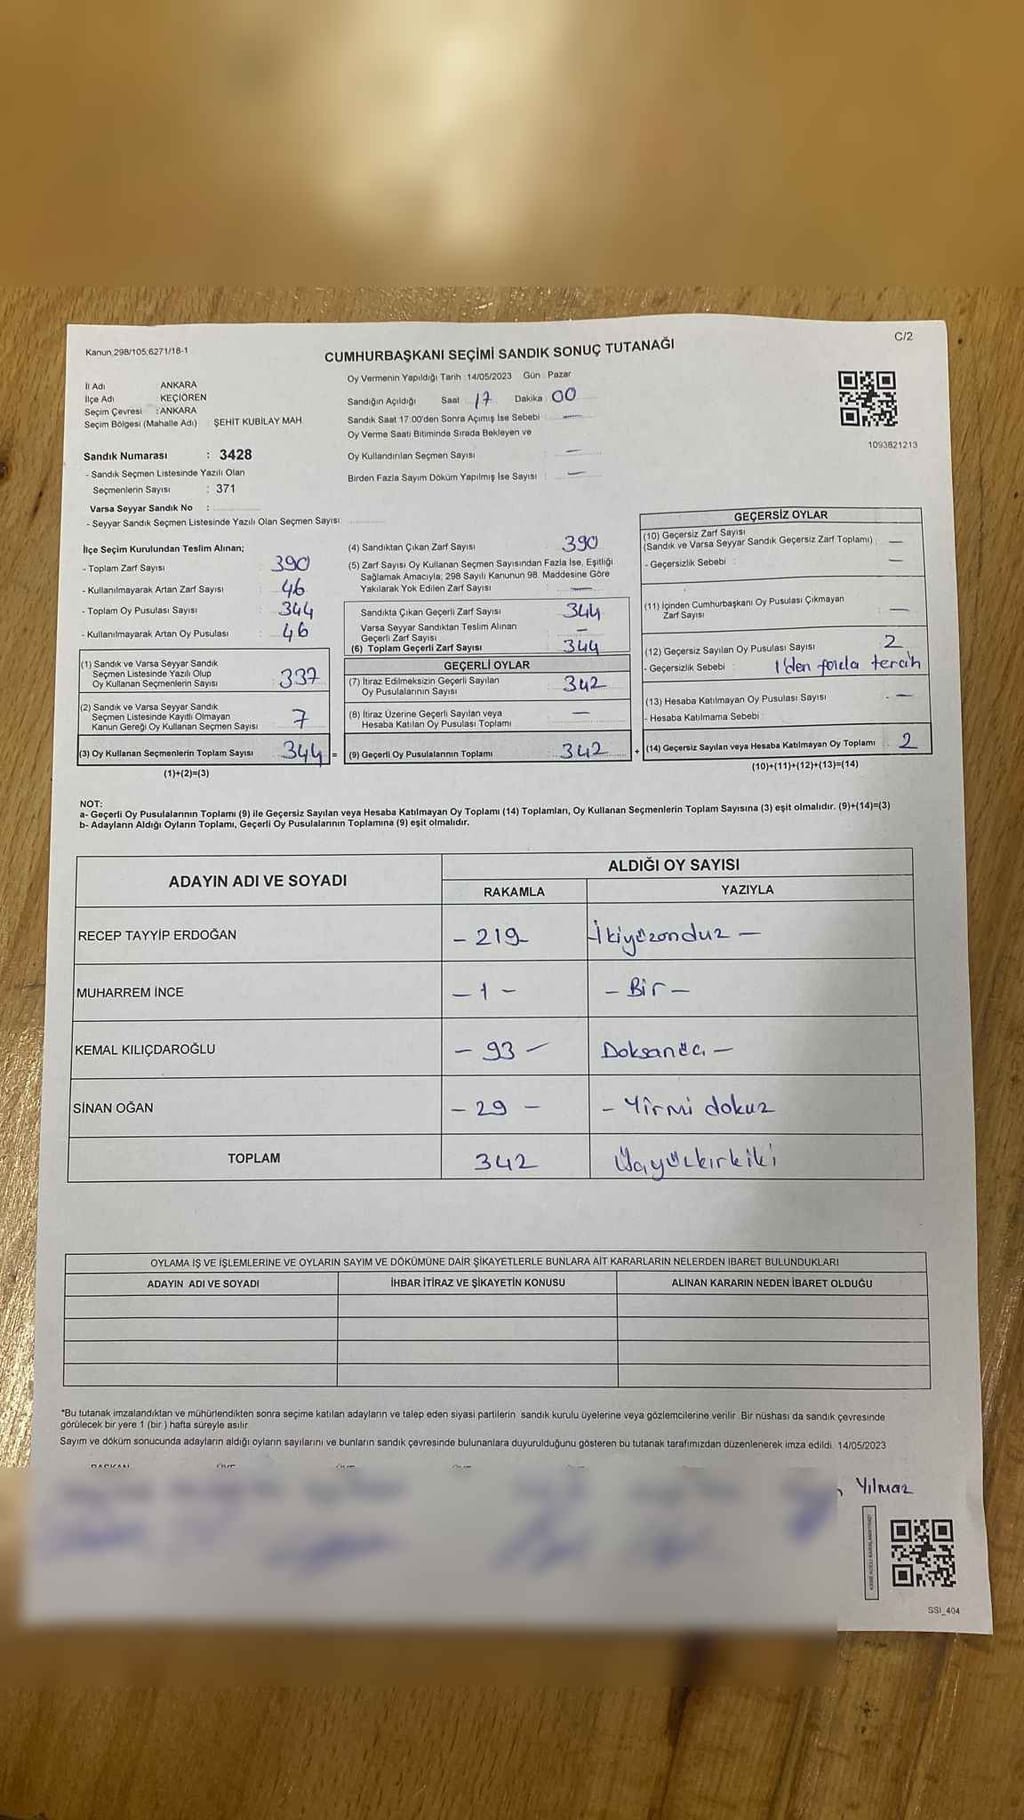 Kanun 298/105,6271/18-1
C/2
CUMHURBAŞKANI SEÇİMİ SANDIK SONUÇ TUTANAĞI
İl Adı : ANKARA
İlçe Adı : KEÇİÖREN
Seçim Çevresi : ANKARA
Seçim Bölgesi (Mahalle Adı) ŞEHİT KUBİLAY MAH
Oy Vermenin Yapıldığı Tarih : 14/05/2023 Gün : Pazar
Sandığın Açıldığı Saat 17 Dakika 00
Sandık Saat 17:00'den Sonra Açımış İse Sebebi : —
Oy Verme Saati Bitiminde Sırada Bekleyen ve
Oy Kullandırılan Seçmen Sayısı : —
Birden Fazla Sayım Döküm Yapılmış İse Sayısı : —
1093621213
Sandık Numarası : 3428
- Sandık Seçmen Listesinde Yazılı Olan
Seçmenlerin Sayısı : 371
Varsa Seyyar Sandık No :
- Seyyar Sandık Seçmen Listesinde Yazılı Olan Seçmen Sayısı:
İlçe Seçim Kurulundan Teslim Alınan;
- Toplam Zarf Sayısı : 390
- Kullanılmayarak Artan Zarf Sayısı : 46
- Toplam Oy Pusulası Sayısı : 344
- Kullanılmayarak Artan Oy Pusulası : 46
(1) Sandık ve Varsa Seyyar Sandık
Seçmen Listesinde Yazılı Olup
Oy Kullanan Seçmenlerin Sayısı : 337
(2) Sandık ve Varsa Seyyar Sandık
Seçmen Listesinde Kayıtlı Olmayan
Kanun Gereği Oy Kullanan Seçmen Sayısı : 7
(3) Oy Kullanan Seçmenlerin Toplam Sayısı : 344 =
(1)+(2)=(3)
(4) Sandıktan Çıkan Zarf Sayısı : 390
(5) Zarf Sayısı Oy Kullanan Seçmen Sayısından Fazla İse, Eşitliği
Sağlamak Amacıyla; 298 Sayılı Kanunun 98. Maddesine Göre
Yakılarak Yok Edilen Zarf Sayısı : —
Sandıkta Çıkan Geçerli Zarf Sayısı : 344
Varsa Seyyar Sandıktan Teslim Alınan
Geçerli Zarf Sayısı : —
(6) Toplam Geçerli Zarf Sayısı : 344
GEÇERLİ OYLAR
(7) İtiraz Edilmeksizin Geçerli Sayılan
Oy Pusulalarının Sayısı : 342
(8) İtiraz Üzerine Geçerli Sayılan veya
Hesaba Katılan Oy Pusulası Toplamı : —
(9) Geçerli Oy Pusulalarının Toplamı : 342 +
GEÇERSİZ OYLAR
(10) Geçersiz Zarf Sayısı
(Sandık ve Varsa Seyyar Sandık Geçersiz Zarf Toplamı) : —
- Geçersizlik Sebebi : —
(11) İçinden Cumhurbaşkanı Oy Pusulası Çıkmayan
Zarf Sayısı : —
(12) Geçersiz Sayılan Oy Pusulası Sayısı : 2
- Geçersizlik Sebebi : 1'den fazla tercih
(13) Hesaba Katılmayan Oy Pusulası Sayısı : —
- Hesaba Katılmama Sebebi :
(14) Geçersiz Sayılan veya Hesaba Katılmayan Oy Toplamı : 2
(10)+(11)+(12)+(13)=(14)
NOT:
a- Geçerli Oy Pusulalarının Toplamı (9) ile Geçersiz Sayılan veya Hesaba Katılmayan Oy Toplamı (14) Toplamları, Oy Kullanan Seçmenlerin Toplam Sayısına (3) eşit olmalıdır. (9)+(14)=(3)
b- Adayların Aldığı Oyların Toplamı, Geçerli Oy Pusulalarının Toplamına (9) eşit olmalıdır.
ADAYIN ADI VE SOYADI
ALDIĞI OY SAYISI
RAKAMLA YAZIYLA
RECEP TAYYİP ERDOĞAN - 219 - İkiyüzonduz -
MUHARREM İNCE - 1 - - Bir -
KEMAL KILIÇDAROĞLU - 93 -
SİNAN OĞAN - 29 - - Yirmi dokuz
TOPLAM 342
OYLAMA İŞ VE İŞLEMLERİNE VE OYLARIN SAYIM VE DÖKÜMÜNE DAİR ŞİKAYETLERLE BUNLARA AİT KARARLARIN NELERDEN İBARET BULUNDUKLARI
ADAYIN ADI VE SOYADI İHBAR İTİRAZ VE ŞİKAYETİN KONUSU ALINAN KARARIN NEDEN İBARET OLDUĞU
*Bu tutanak imzalandıktan ve mühürlendikten sonra seçime katılan adayların ve talep eden siyasi partilerin sandık kurulu üyelerine veya gözlemcilerine verilir. Bir nüshası da sandık çevresinde
görülecek bir yere 1 (bir) hafta süreyle asılır.
Sayım ve döküm sonucunda adayların aldığı oyların sayılarını ve bunların sandık çevresinde bulunanlara duyurulduğunu gösteren bu tutanak tarafımızdan düzenlenerek imza edildi. 14/05/2023
Yılmaz
SSI_404